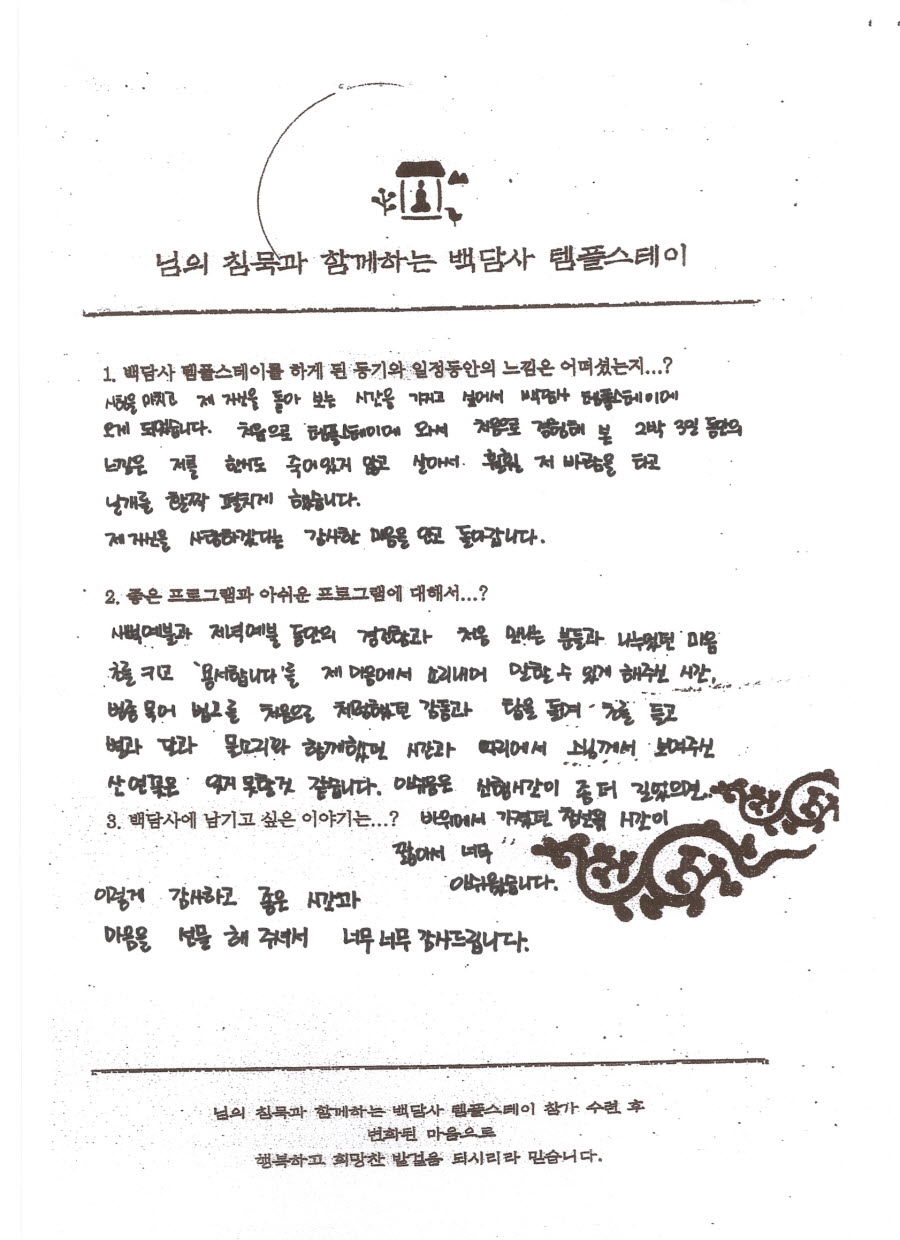 님의 침묵과 함께하는 백담사 템플스테이
1. 백담사 템플스테이를 하게 된 동기와 일정동안의 느낌은 어떠셨는지...?
시험을 마치고 제 자신을 돌아 보는 시간을 가지고 싶어서 백담사 템플스테이에
오게 되었습니다. 처음으로 템플스테이에 와서 처음으로 경험해 본 2박 3일 동안의
느낌은 저를 한해도 죽어있지 않고 살아서 훨훨 저 바람을 타고
날개를 활짝 펼치게 했습니다.
제 자신을 사랑하겠다는 감사한 마음을 안고 돌아갑니다.
2. 좋은 프로그램과 아쉬운 프로그램에 대해서...?
새벽예불과 저녁예불 동안의 경건함과 처음 만나는 분들과 나누었던 마음
초를 키고 '용서합니다'를 제 마음에서 소리내어 말할 수 있게 해주신 시간,
범종 목어 법고를 처음으로 체험했던 감동과 탑을 돌며 초를 들고
별과 달과 물소리와 함께했던 시간과 다리에서 스님께서 보여주신
산 연꽃은 잊지 못할것 같습니다. 아쉬움은 산행시간이 좀 더 길었으면..
3. 백담사에 남기고 싶은 이야기는...? 바위에서 가졌던 시간이
짧아서 너무
아쉬웠습니다.
이렇게 감사하고 좋은 시간과
마음을 선물 해 주셔서 너무 너무 감사드립니다.
님의 침묵과 함께하는 백담사 템플스테이 참가 수련 후
변화된 마음으로
행복하고 희망찬 발걸음 되시리라 믿습니다.